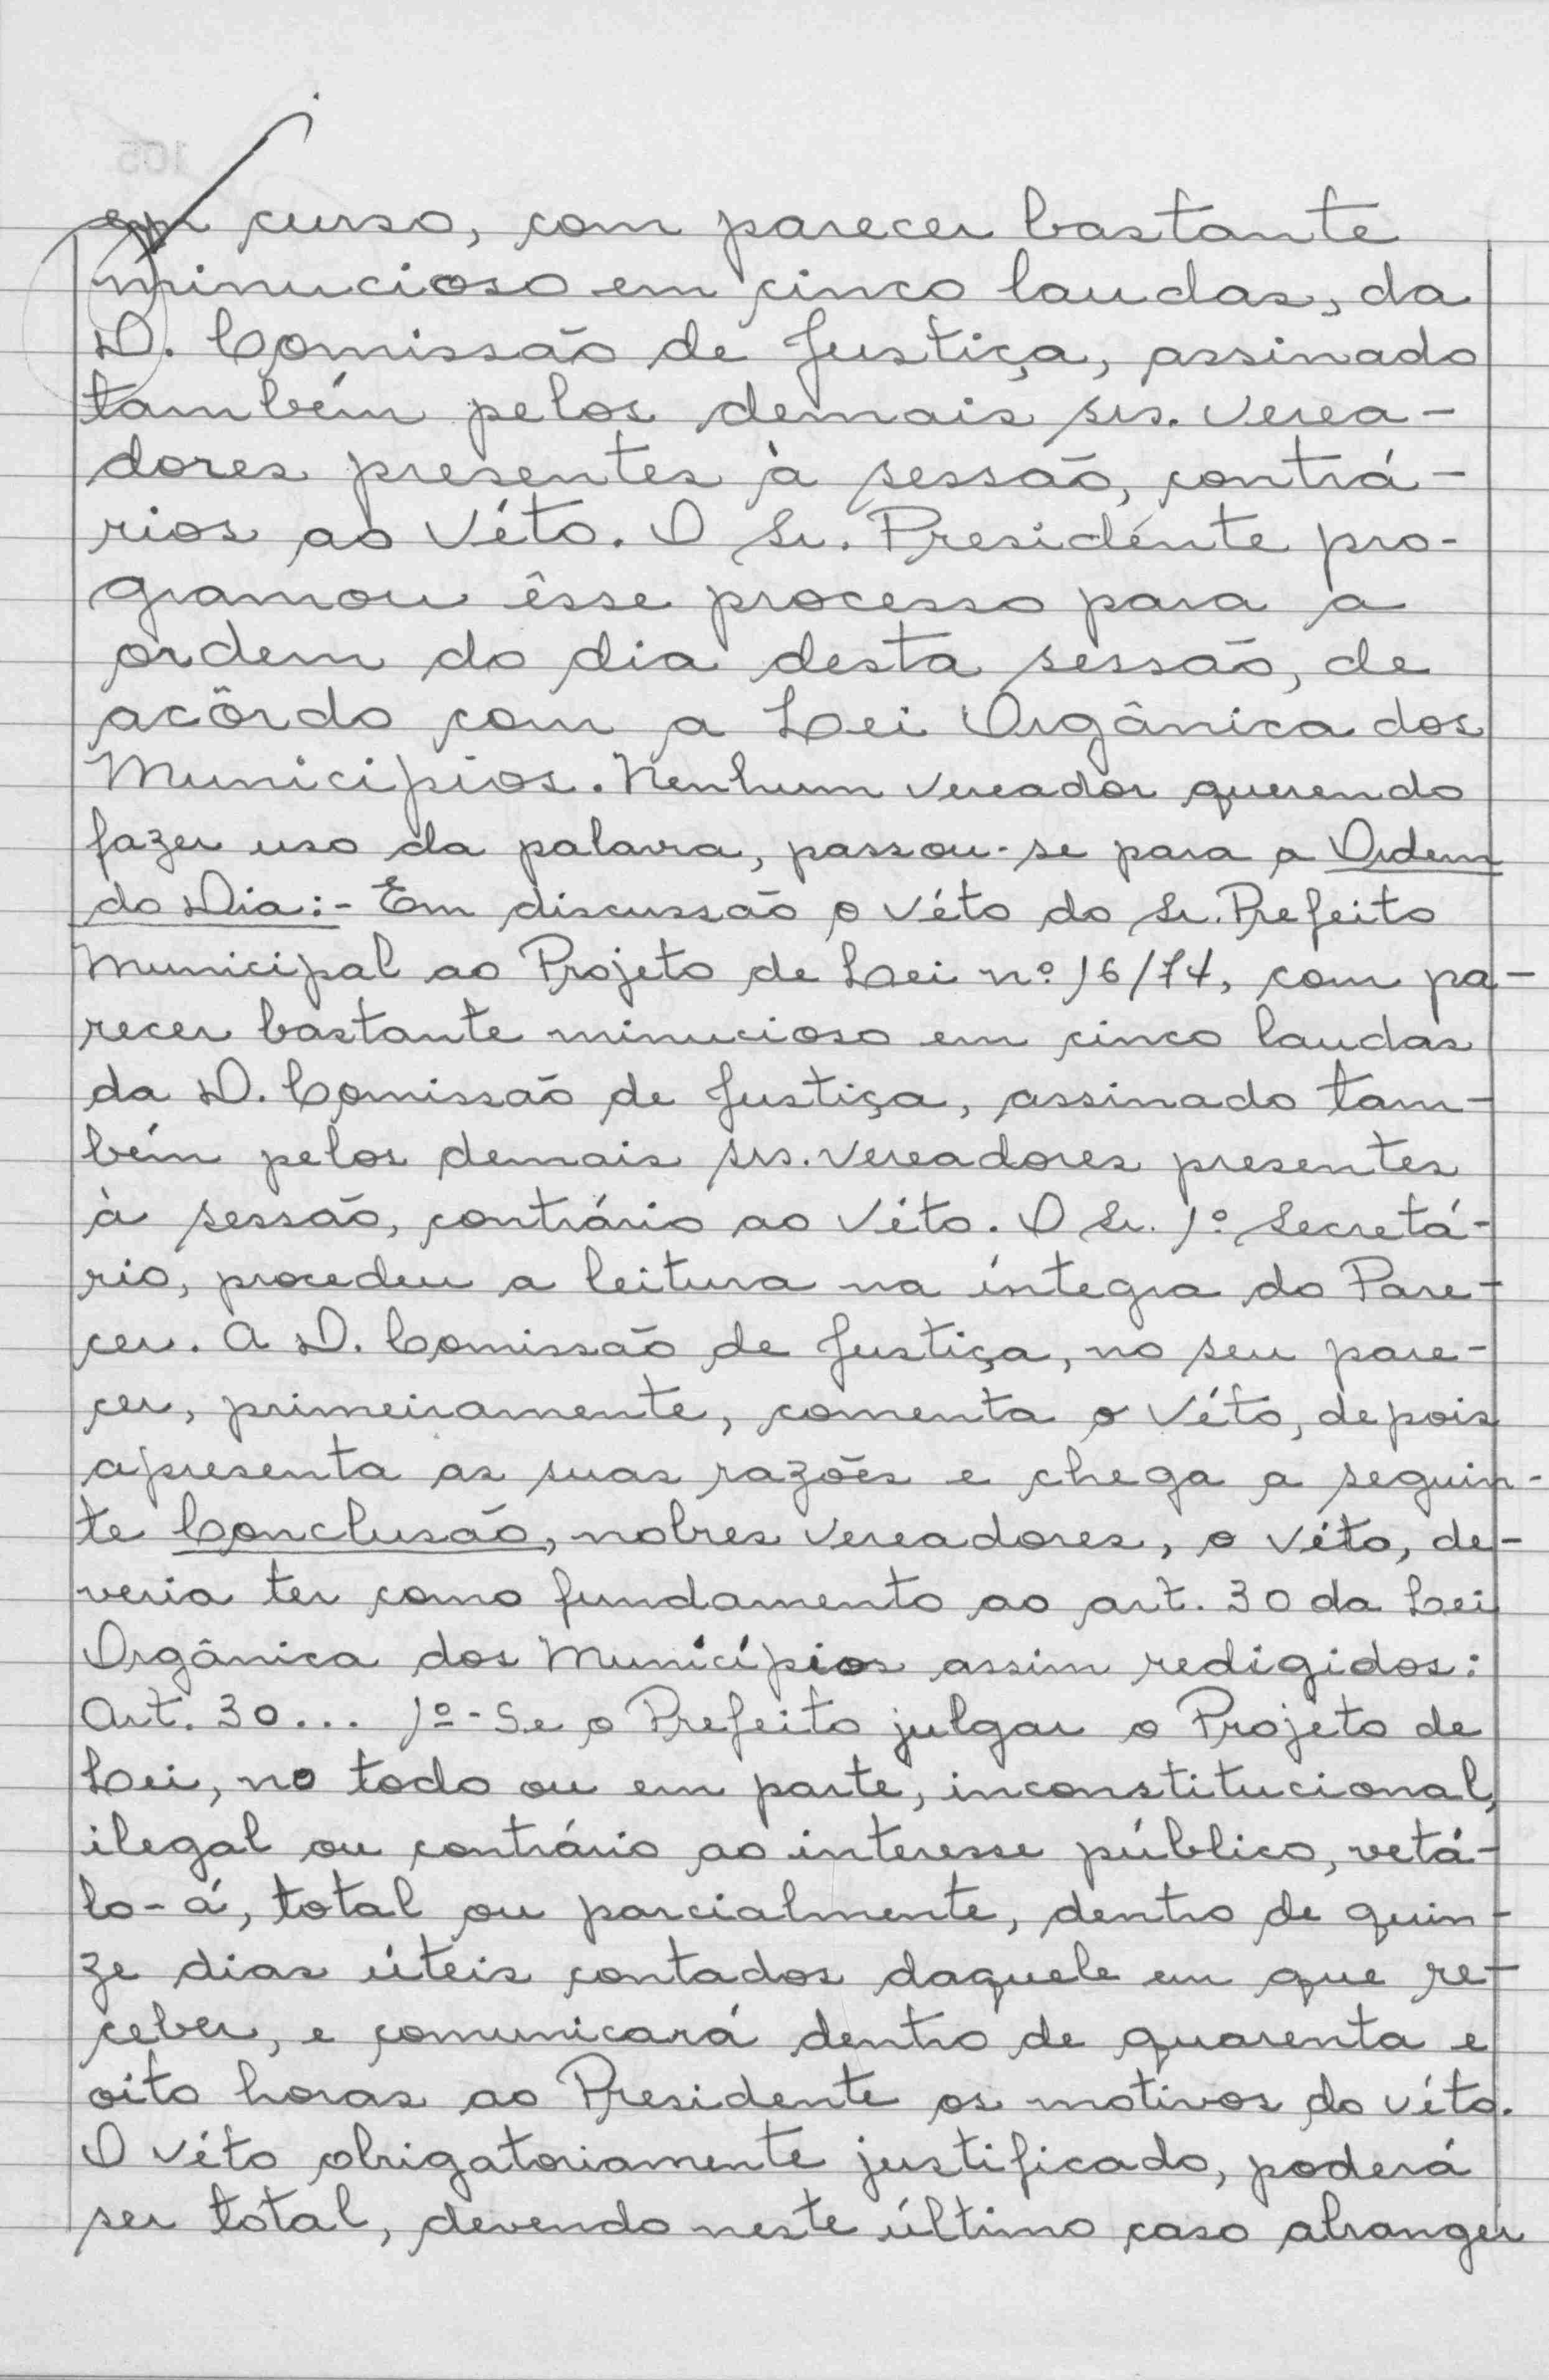 em curso, com parecer bastante
minucioso em cinco laudas, da
D. Comissão de Justiça, assinado
também pelos demais srs. verea-
dores presentes à sessão, contrá-
rios ao Véto. O Sr. Presidénte pro-
gramou êsse processo para a
ordem do dia desta sessão, de
acôrdo com a Lei Orgânica dos
Municipios. Nenhum vereador querendo
fazer uso da palavra, passou-se para a Ordem
do Dia:- Em discussão o véto do Sr. Prefeito
Municipal ao Projeto de Lei nº 16/74, com pa-
recer bastante minucioso em cinco laudas
da D. Comissão de Justiça, assinado tam-
bém pelos demais srs. vereadores presentes
à sessão, contrário ao Véto. O Sr. 1º Secretá-
rio, procedeu a leitura na íntegra do Pare-
cer. A D. Comissão de Justiça, no seu pare-
cer, primeiramente, comenta o Véto, depois
apresenta as suas razões e chega a seguin-
te Conclusão, nobres vereadores, o véto, de-
veria ter como fundamento ao art. 30 da Lei
Orgânica dos Municípios assim redigidos:
Art. 30... 1º - Se o Prefeito julgar o Projeto de
Lei, no todo ou em parte, inconstitucional,
ilegal ou contrário ao interesse público, vetá-
lo-á, total ou parcialmente, dentro de quin-
ze dias úteis contados daquele em que re-
ceber, e comunicará dentro de quarenta e
oito horas ao Presidente os motivos do véto.
O véto obrigatoriamente justificado, poderá
ser total, devendo neste último caso abranger